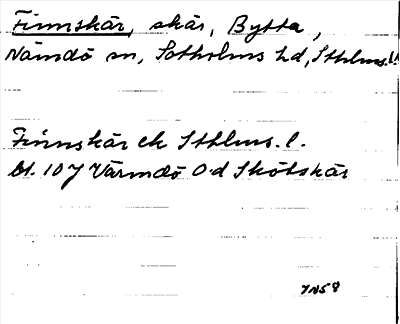 Finnskär, skär, Bytta,
Nämdö sn, Sotholms hd, Sthlms l.
Finnskär ek Sthlms l.
bl. 107 Värmdö Od Skötskär